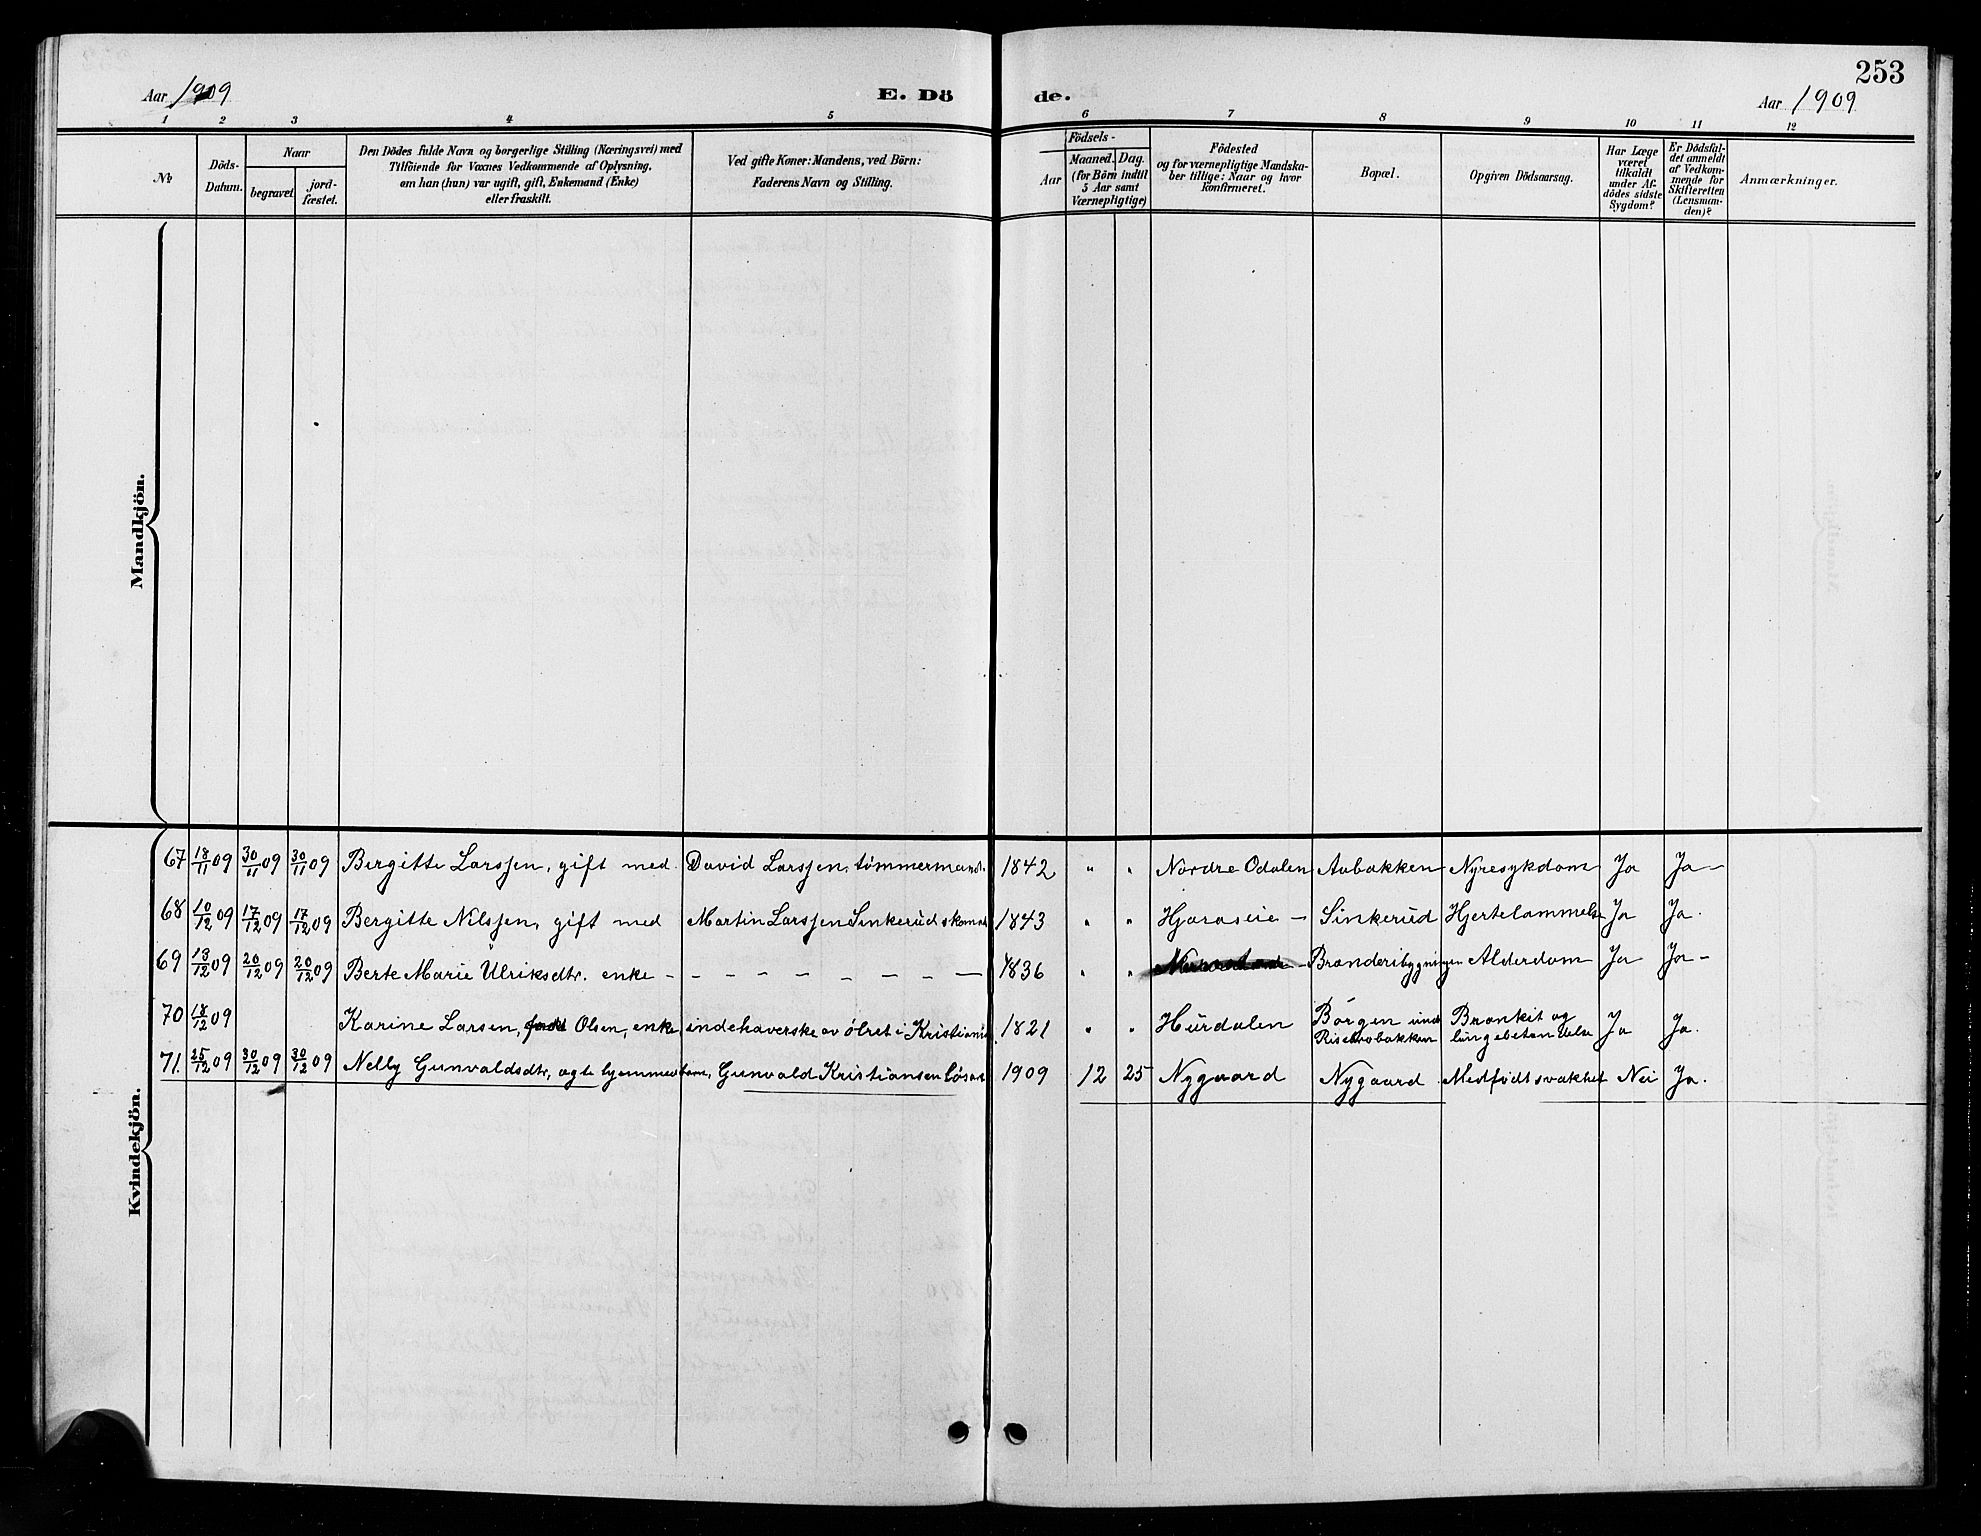 253
Aar 1909
E. Dö
de.
Aar 1909
1 2 3 4 5 6 7 8 9 10 11 12
№
Döds-Datum.
Naar
begravet
jord-fæstet.
Den Dödes fulde Navn og borgerlige Stilling (Næringsvei) med
Tilföiende for Voxnes Vedkommende af Oplysning,
om han (hun) var ugift, gift, Enkemand (Enke)
eller fraskilt.
Ved gifte Koner: Mandens, ved Börn:
Faderens Navn og Stilling.
Födsels-
Aar
Maaned. Dag.
(for Börn indtil
5 Aar samt
Værnepligtige)
Födested
og for værnepligtige Mandska-
ber tillige: Naar og hvor
konfirmeret.
Bopæl.
Opgiven Dödsaarsag.
Har Læge
været
tilkaldt
under Af-
dödes sidste
Sygdom?
Er Dödsfal-
det anmeldt
af Vedkom-
mende for
Skifteretten
(Lensman-
den)?
Anmærkninger.
Mandkjön.
Kvindekjön.
67 18/11 09 30/11 09 30/11 09 Bergitte Larssen, gift med David Larssen, tömmermand. 1842 " " Nordre Odalen Aabakken Nyresykdom Ja Ja-
68 10/12 09 17/12 09 17/12 09 Bergitte Nilssen, gift med Martin Larssen Sinkerud 1843 " " Hjaraseie - Sinkerud Hjertelammelse Ja Ja.
69 13/12 09 20/12 09 20/12 09 Berte Marie Ulriksdtr. enke - - - - - - - - 1836 " " - Brænderibygningen Alderdom Ja Ja-
70 18/12 09 Karine Larsen, født Olsen, enke, indehaverske av ölret i Kristiania. 1821 " " Hurdalen Börgen Bronkit og Ja Ja.
lungebetændelse
71. 25/12 09 30/12 09 30/12 09 Nelly Gunvaldsdtr, ægte hjemmed, Gunvald Kristiansen 1909 12 25 Nygaard Nygaard Medfödt svakhet Nei Ja.